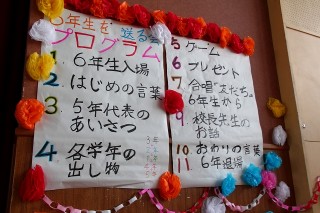 6年生を送る
プログラム
1 6年生入場
2 はじめの言葉
3 5年代表の
あいさつ
4 各学年の
出し物
5 ゲーム
6 プレゼント
7 合唱"友だち"
8 6年生から
9 校長先生の
お話
10 おわりの言葉
11 6年退場